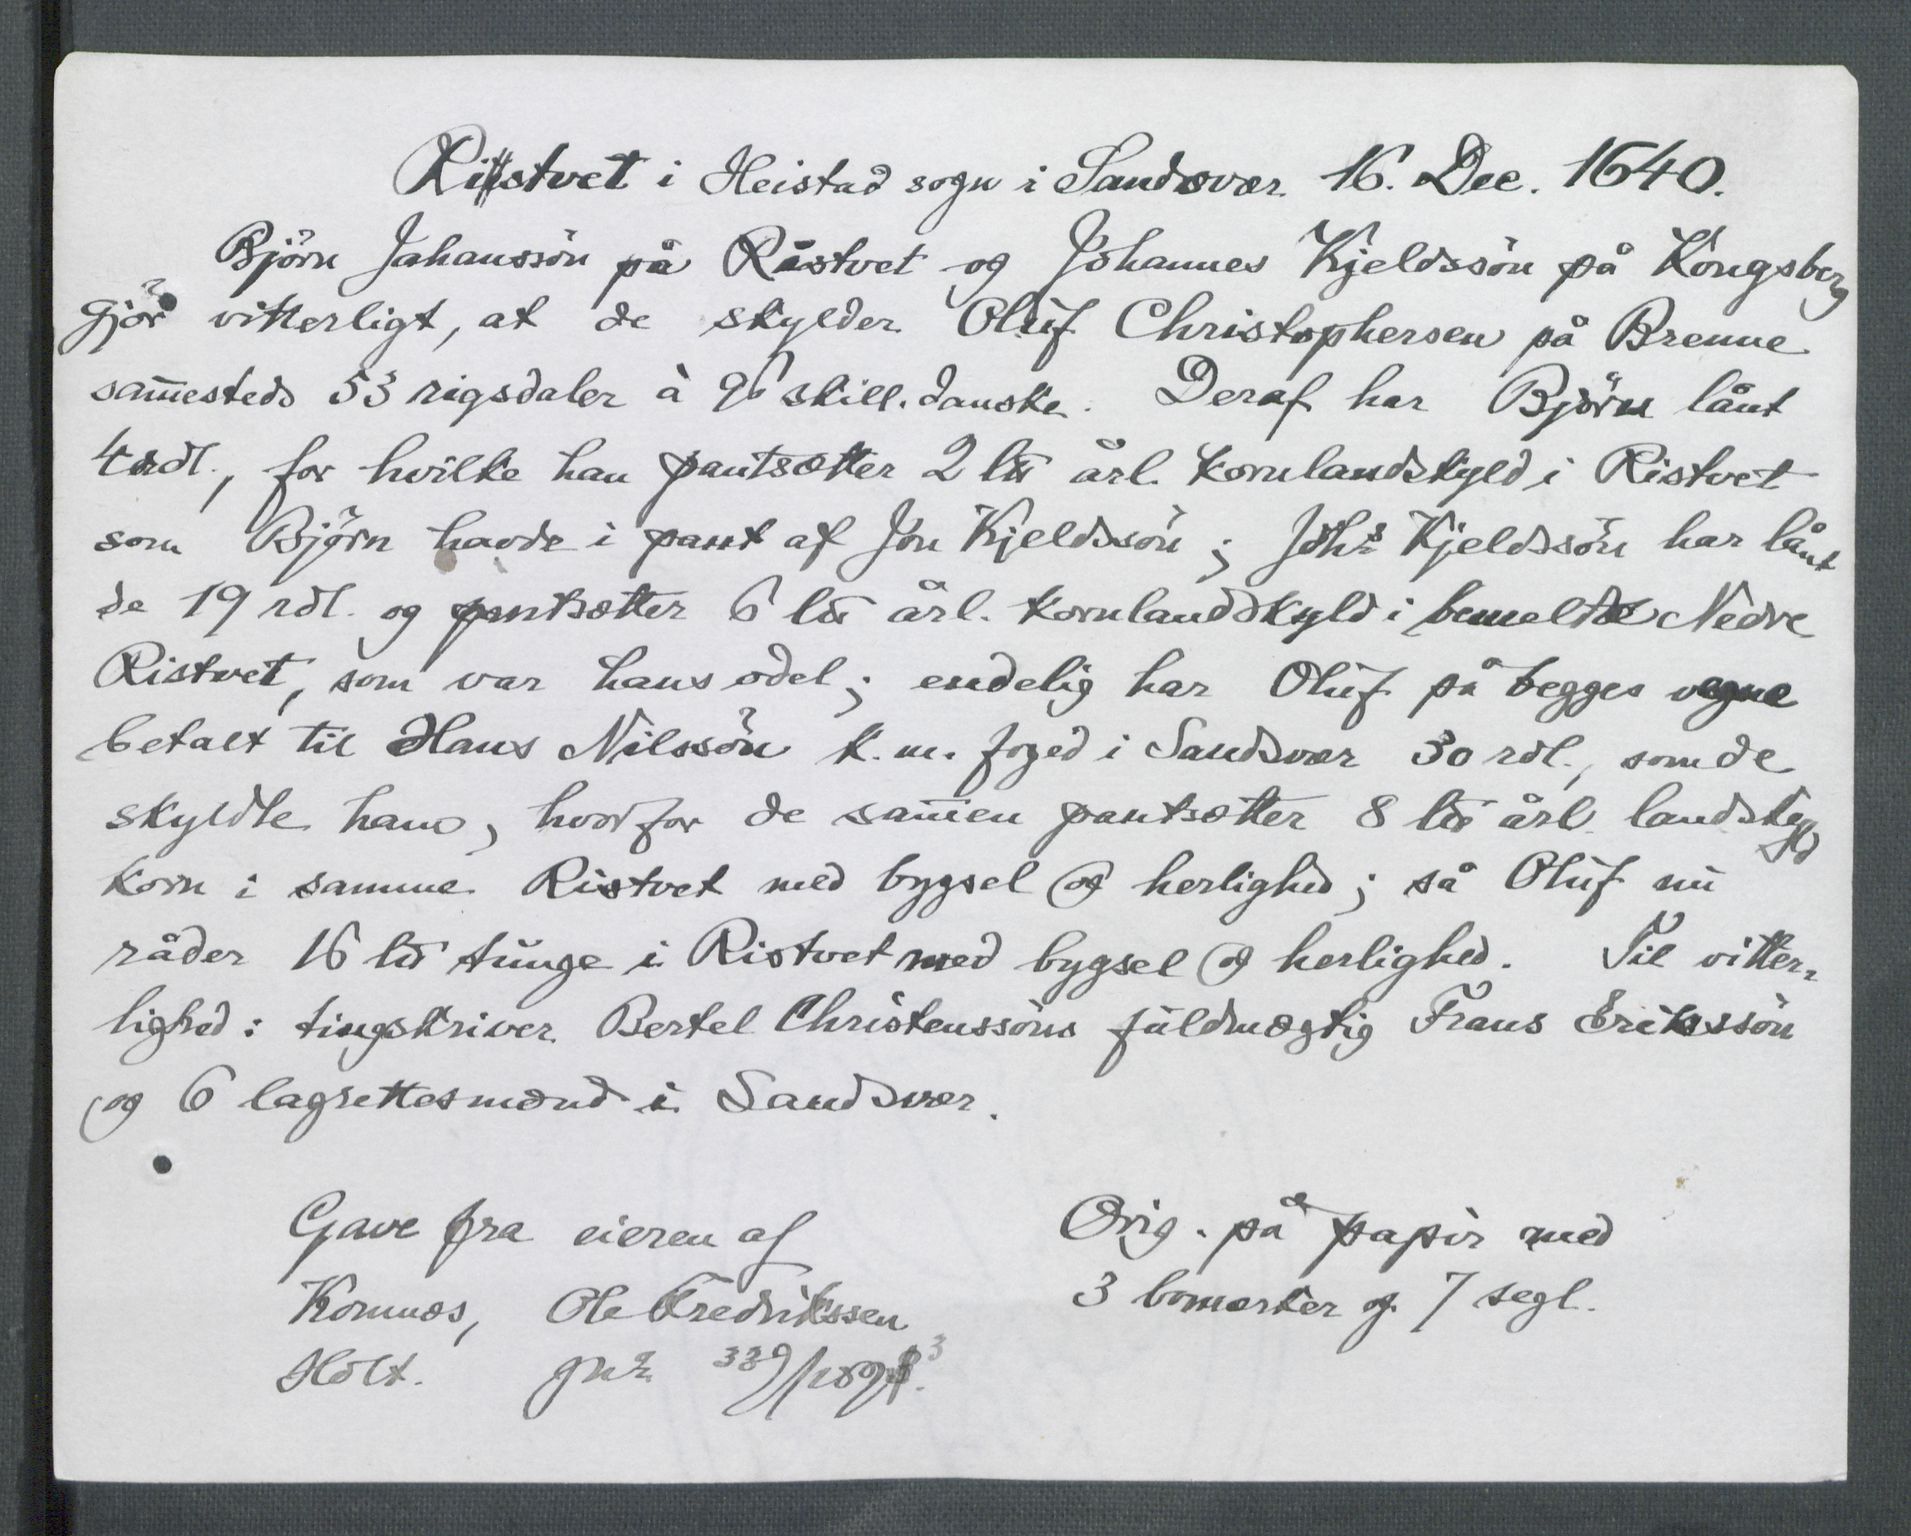 Ristvet i Heistad sogn i Sandsvær 16. Dec. 1640.
Björn Jahanssön på Ristvet og Johannes Kjeldssön på Kongsberg
gjör vitterligt, at de skylder Oluf Christophersen på Brenne
sam̄esteds 53 rigsdaler à 96 skill. danske. Deraf har Björn lånt
4 rdl., for hvilke han pantsætter 2 lü årl. kornlandskyld i Ristvet
som Björn havde i pant af Jon Kjeldssön; Johs Kjeldssön har lånt
de 19 rdl. og pantsætter 6 lü årl. kornlandskyld i bemeldte Nedre
Ristvet, som var hans odel; endelig har Oluf på begges vegne
betalt til Hans Nilssön k. m. foged i Sandsvær 30 rdl., som de
skyldte ham, hvorfor de sam̄en pantsætter 8 lü årl. landskyld
korn i samme Ristvet med bygsel og herlighed; så Oluf nu
råder 16 lü tunge i Ristvet med bygsel og herlighed. Til vitter-
lighed: tingskriver Bertel Christenssöns fuldmægtig Frans Erikssön
og 6 lagrettesmænd i Sandsvær.
Gave fra eieren af
Komnæs, Ole Fredrikssen
Holt. jnr 339/1893.
Orig. på papir med
3 bomærker og 7 segl.